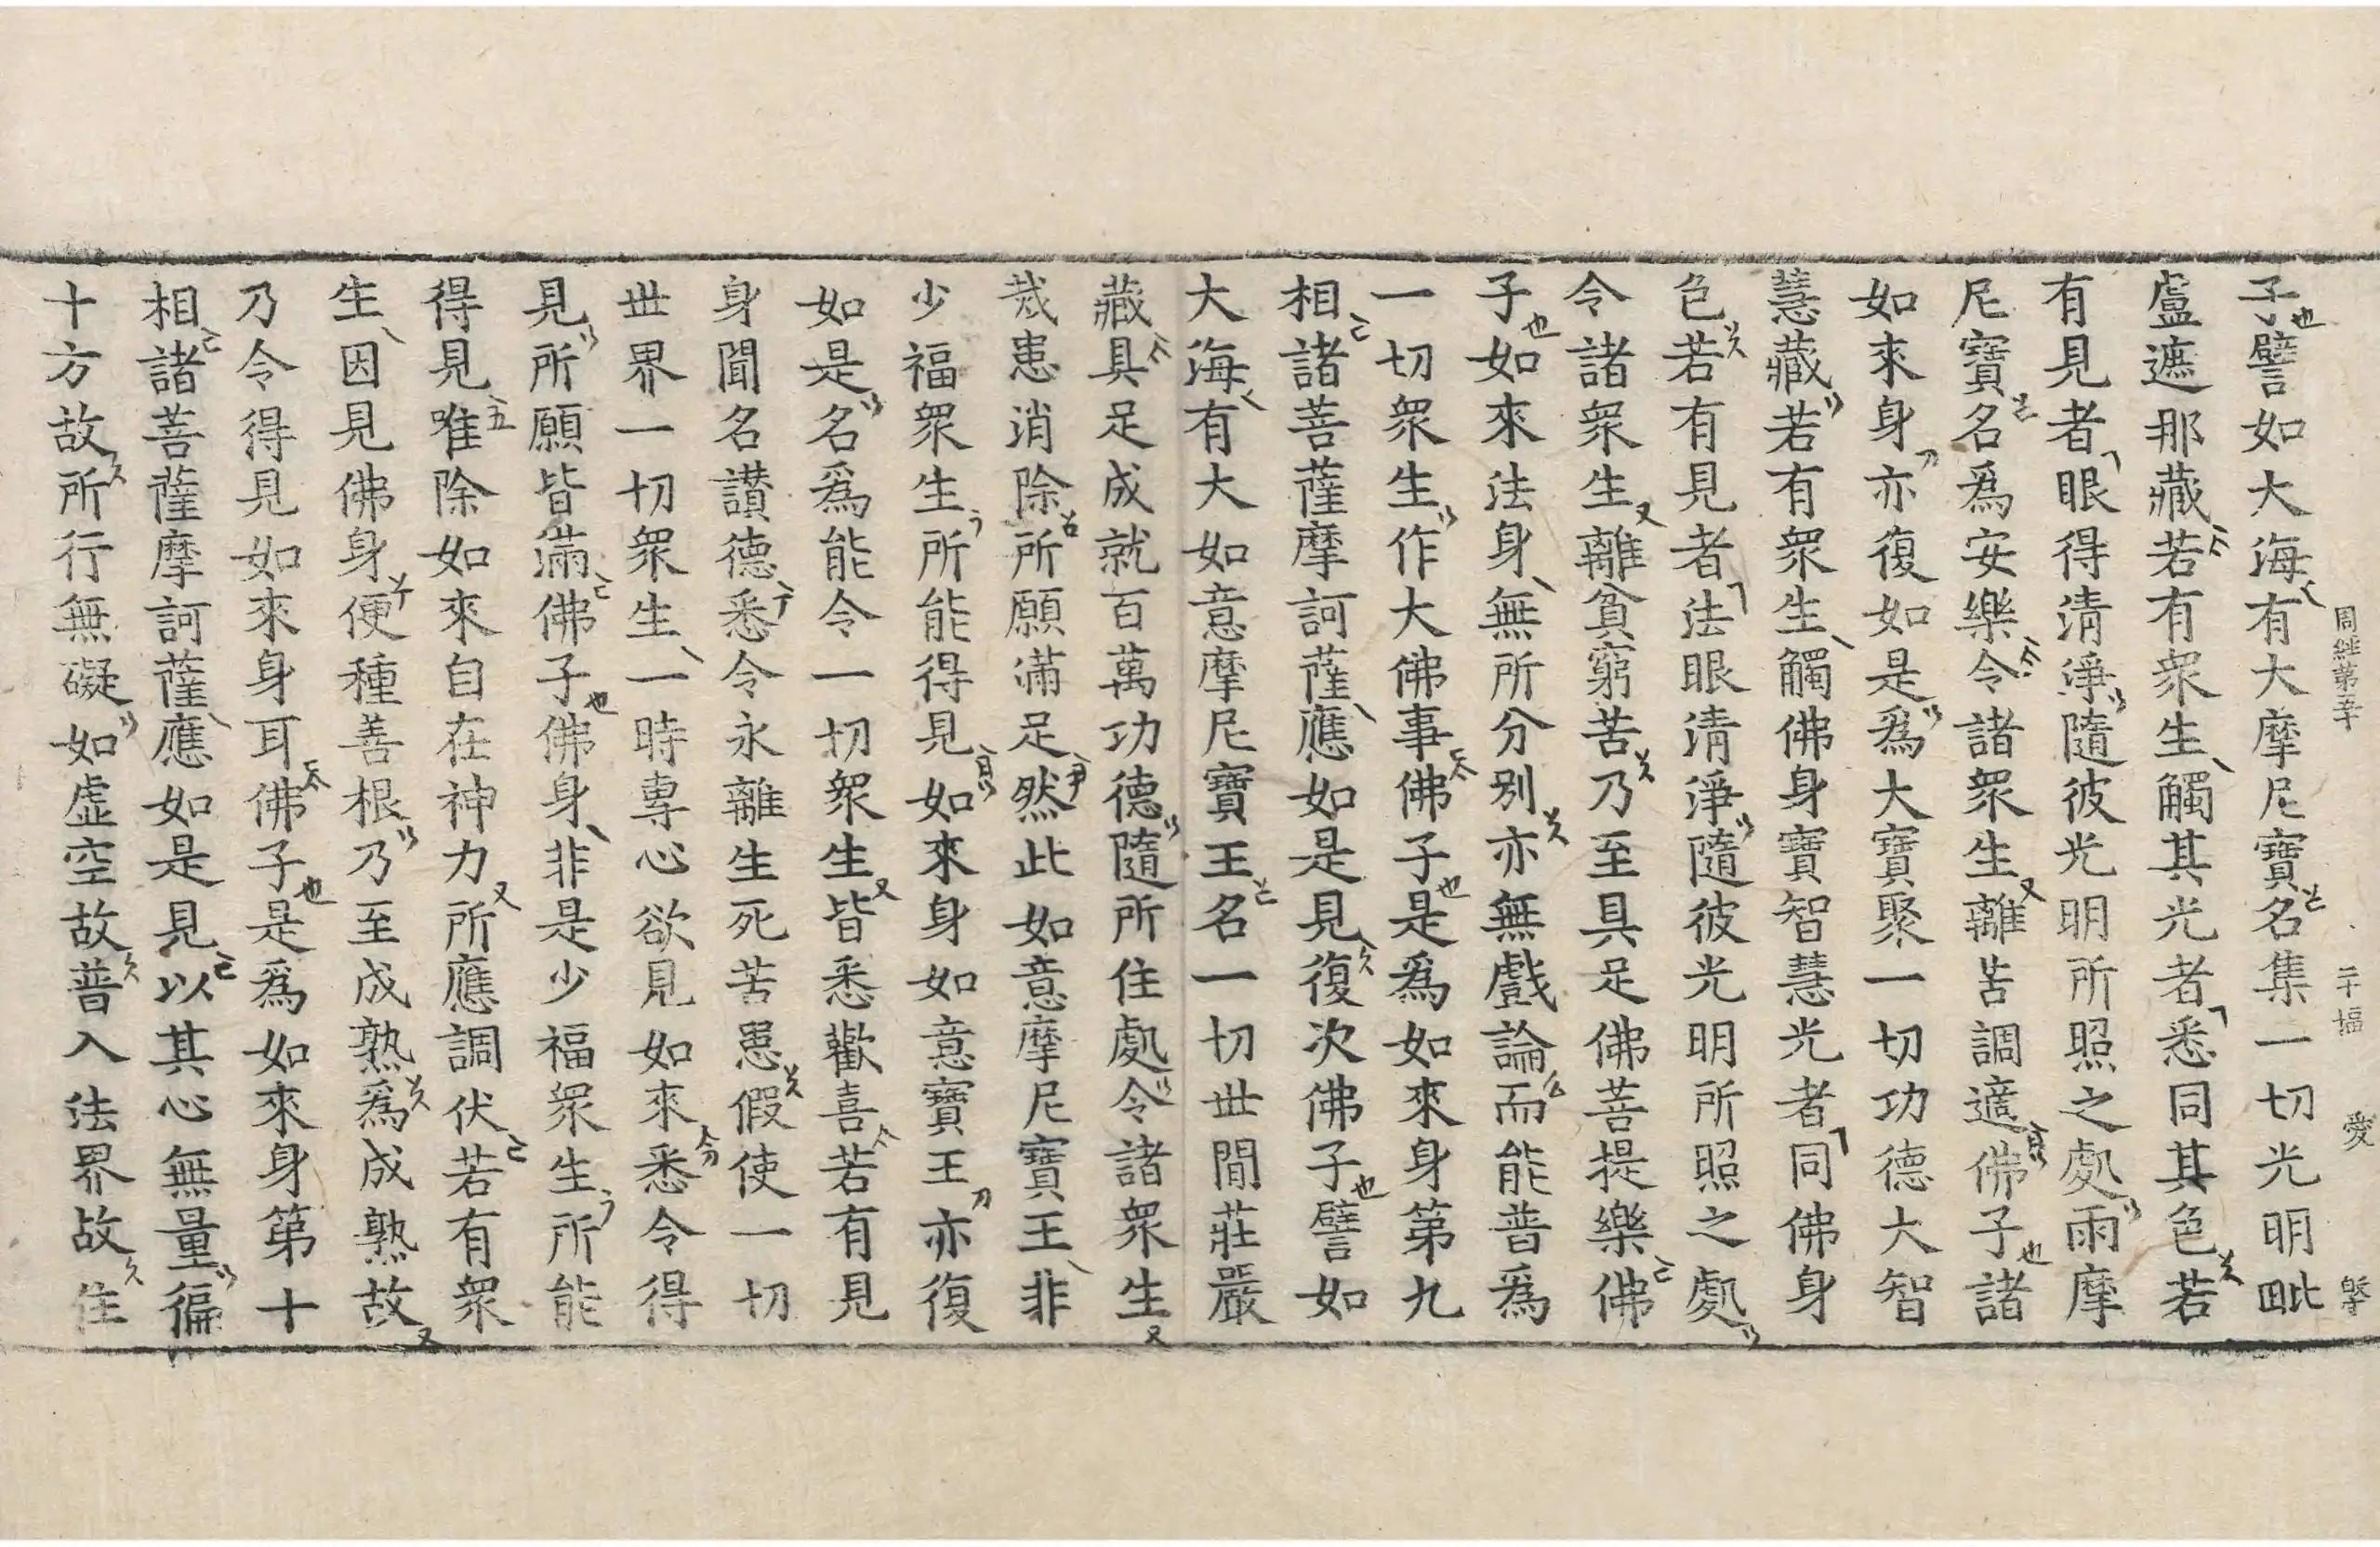 周經第五十 二十幅 愛 槩
子譬如大海有大摩尼寶名集一切光明毗
盧遮那藏若有衆生觸其光者悉同其色若
有見者眼得淸淨隨彼光明所照之處雨摩
尼寶名爲安樂令諸衆生離苦調適佛子諸
如來身亦復如是爲大寶聚一切功德大智
慧藏若有衆生觸佛身寶智慧光者同佛身
色若有見者法眼淸淨隨彼光明所照之處
令諸衆生離貧窮苦乃至具足佛菩提樂佛
子如來法身無所分別亦無戲論而能普爲
一切衆生作大佛事佛子是爲如來身第九
相諸菩薩摩訶薩應如是見復次佛子譬如
大海有大如意摩尼寶王名一切世間莊嚴
藏具足成就百萬功德隨所住處令諸衆生
烖患消除所願滿足然此如意摩尼寶王非
少福衆生所能得見如來身如意寶王亦復
如是名爲能令一切衆生皆悉歡喜若有見
身聞名讃德悉令永離生死苦患假使一切
世界一切衆生一時專心欲見如來悉令得
見所願皆滿佛子佛身非是少福衆生所能
得見唯除如來自在神力所應調伏若有衆
生因見佛身便種善根乃至成熟爲成熟故
乃令得見如來身耳佛子是爲如來身第十
相諸菩薩摩訶薩應如是見以其心無量徧
十方故所行無礙如虛空故普入法界故住